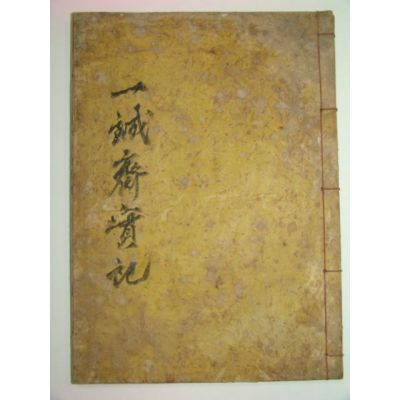 一誠齋實記